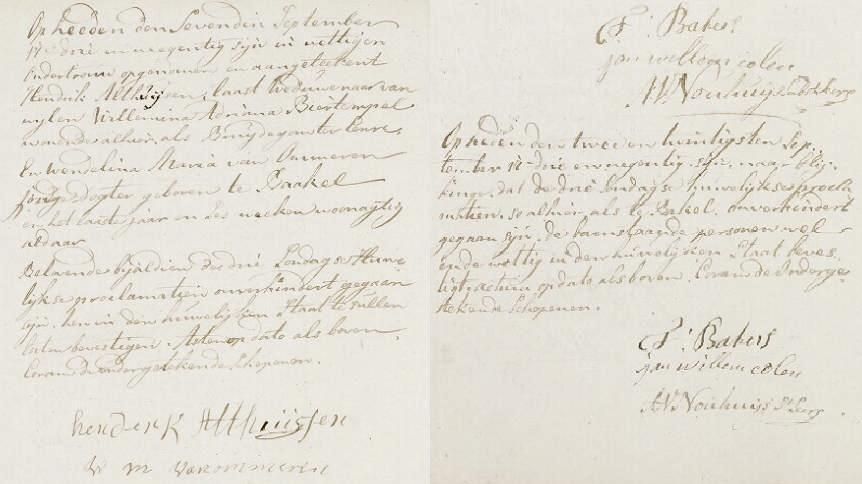 Op heeden den Sevenden September
17 drie en negentig sijn in wettigen
ondertrouw opgenomen en aangeteekent
Hendrik Althuijsen, laast weduwenaar van
wylen Willemina Adriana Biertempel
woonende alhier, als Bruijdegom ter eenre,
En Wendelina Maria van Ommeren
jonge dogter geboren te Baakel
en het laaste jaar en ses weeken woonagtig
aldaar
Belovende bij aldien de drie Sondagse Huwe
lijkse proclamatien onverhindert gegaan
sijn, hen in den huwelijken Staat te sullen
laten bevestigen. Asten op dato als boven.
Coram de ondergetekende Schepenen.
henderk Althuijssen
W M van ommeren
P: Bakers
jan willem colen
A.V. Nouhuys
Op heeden den twee en twintigsten Sep
tember 17 drie en negentig sijn, naar blij
kinge, dat de drie sondagse huwelijkse procla
matien, so alhier, als te Bakel, onverhindert
gegaan sijn, de bovenstaande personen vol
ende wettig in den huwelijken Staat beves
tigt, actum op dato als boven. Coram de Onderge
tekende Schepenen.
P: Bakers
jan willem colen
A.V. Nouhuijs